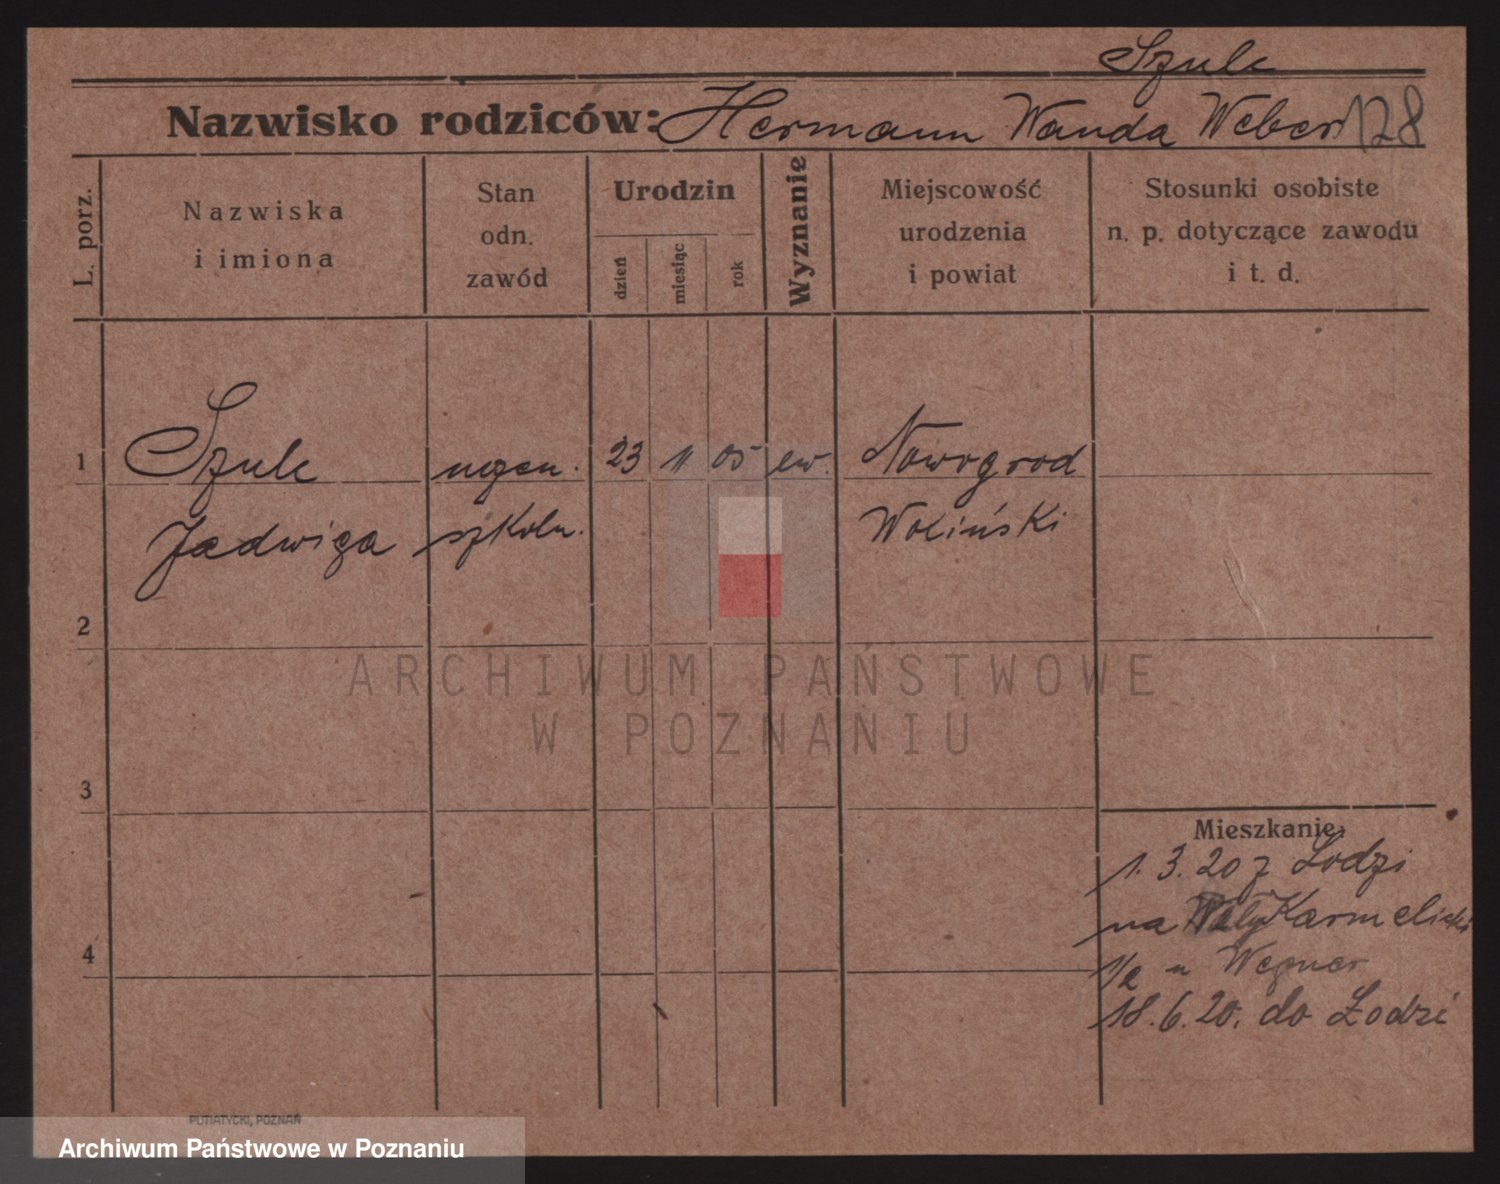 Szulc
Nazwisko rodziców: Hermann Wanda Weber 128
L. porz.
Nazwiska
i imiona
Stan
odn.
zawód
Urodzin
dzień
miesiąc
rok
Wyznanie
Miejscowość
urodzenia
i powiat
Stosunki osobiste
n. p. dotyczące zawodu
i t. d.
1 Szulc uczen. 23 11 05 ew. Nowogrod
Jadwiga szkoln. Wołiński
2
ARCHIWUM PAŃSTWOWE
W POZNANIU
3
Mieszkanie:
1. 3. 20 z Łodzi
na Karmelicki
1/2 u Wegner
4
18. 6. 20. do Łodzi
PUTIATYCKI, POZNAŃ
Archiwum Państwowe w Poznaniu